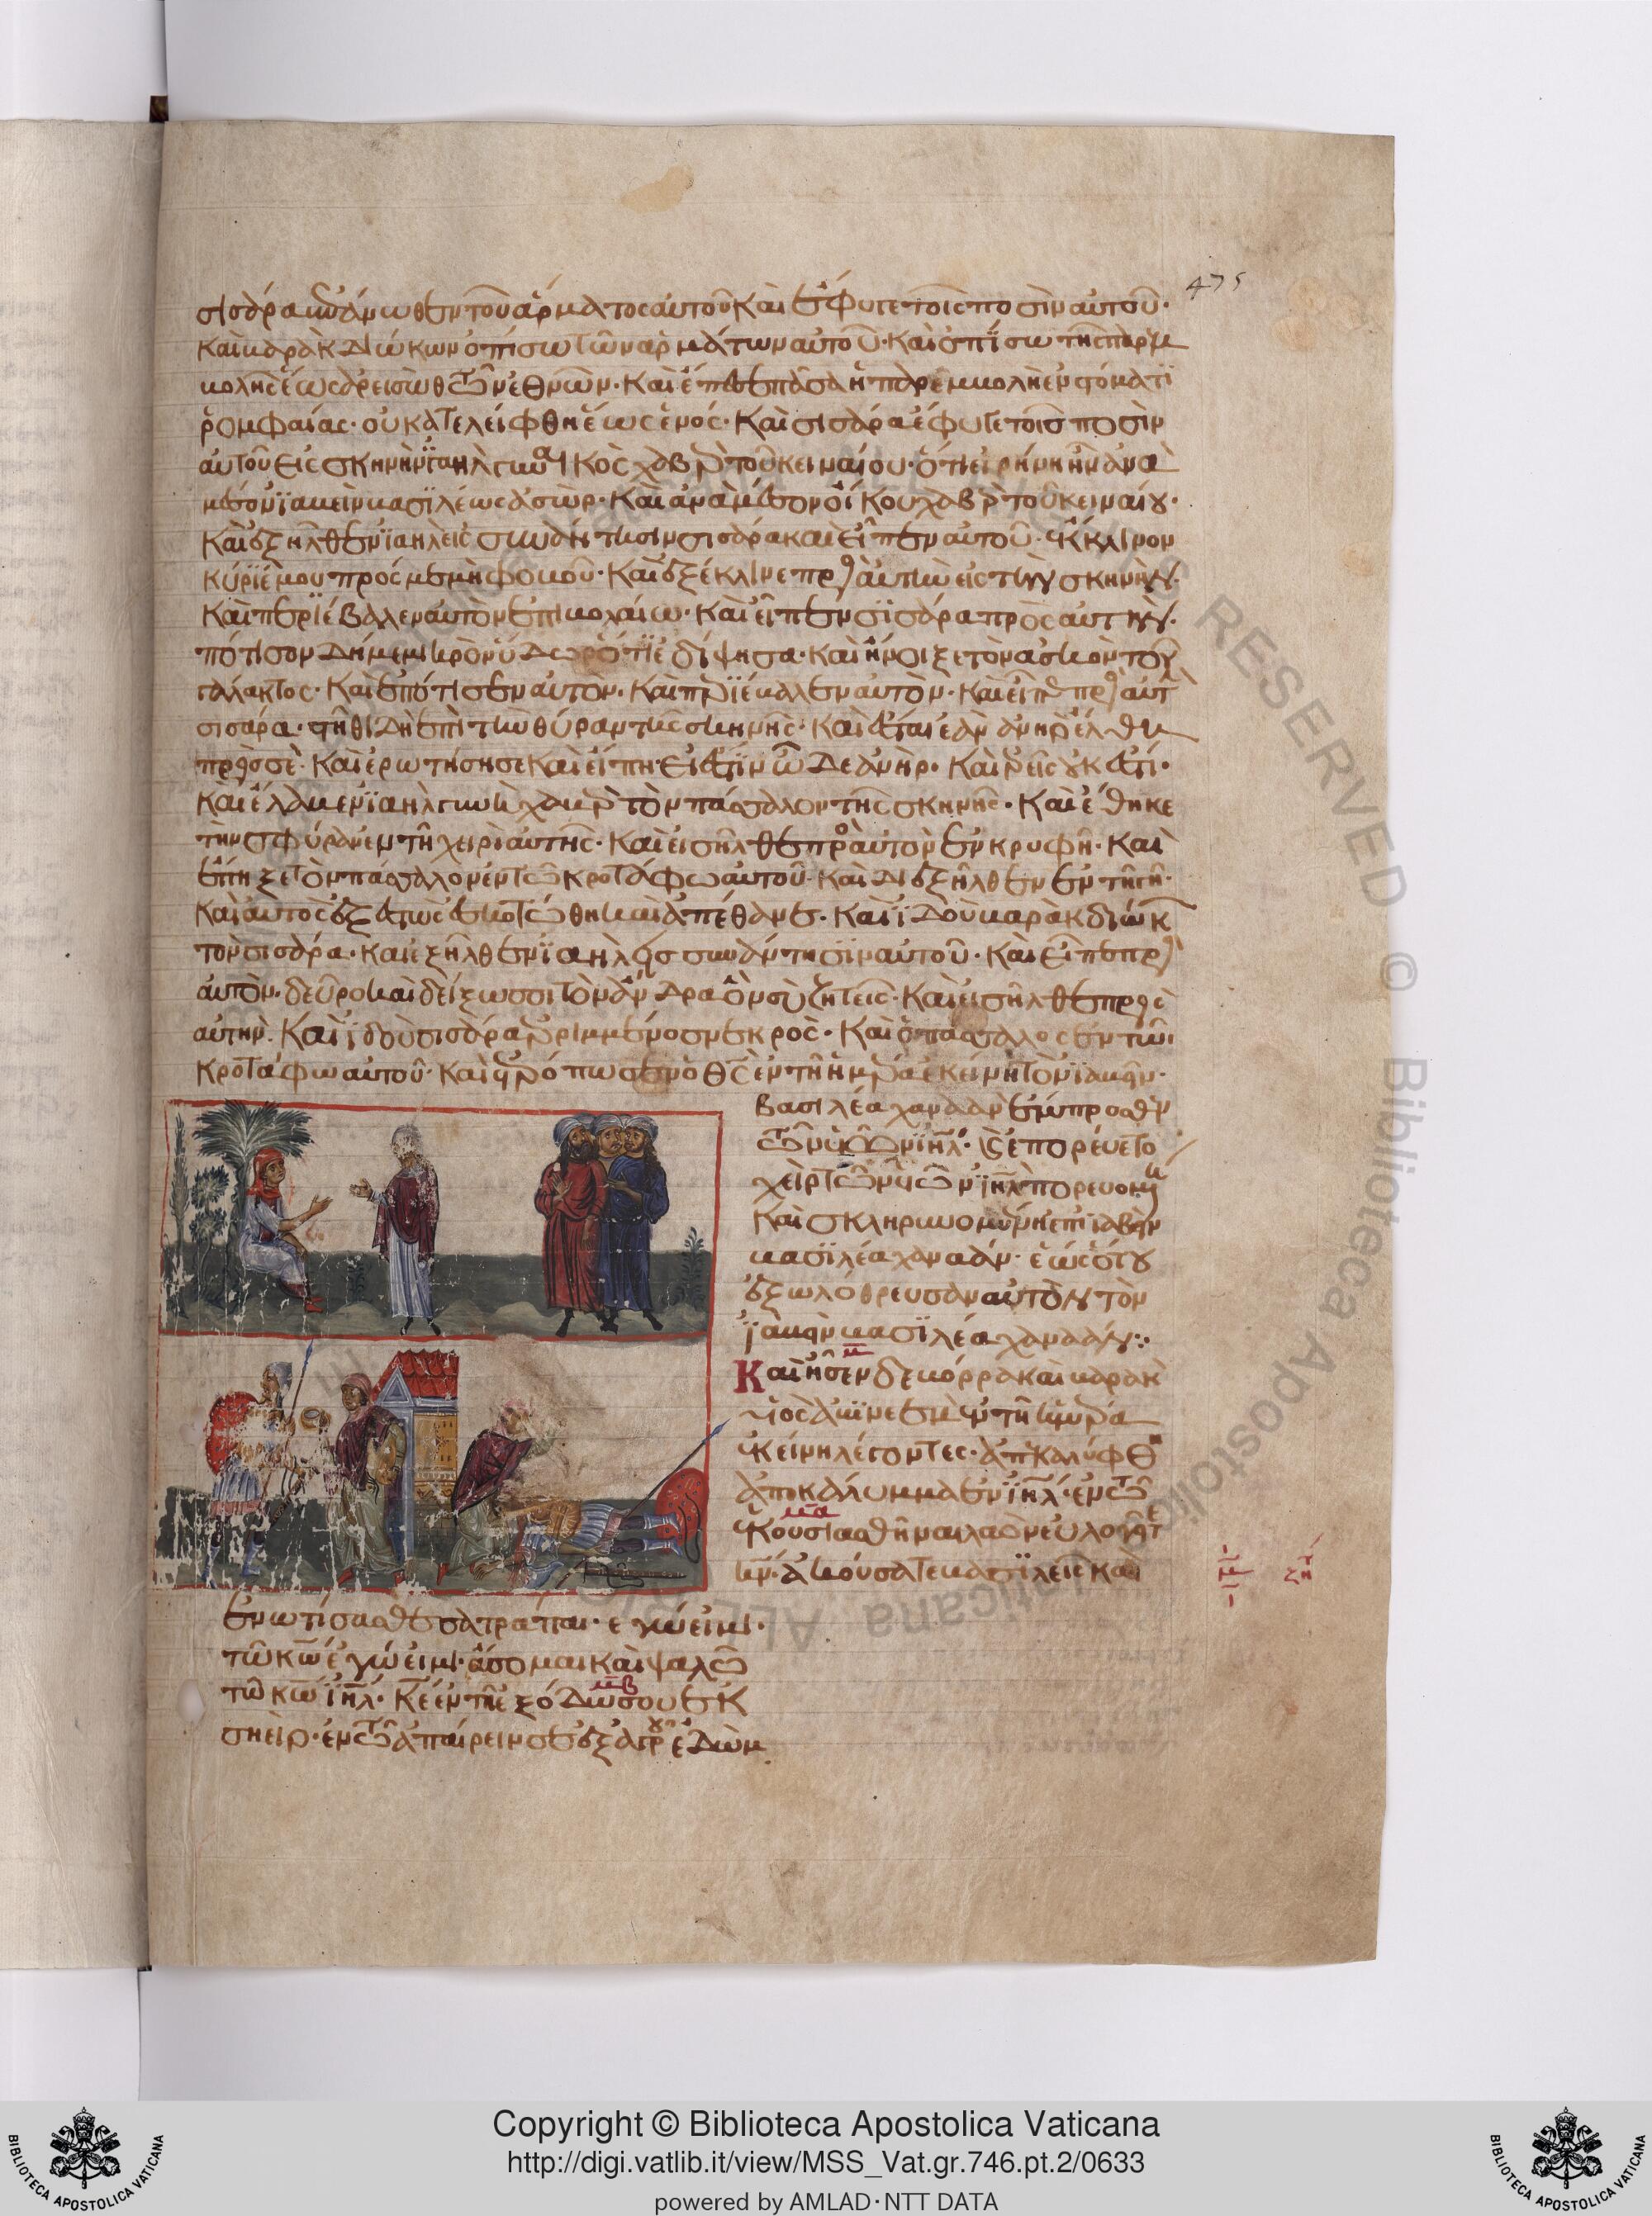 475
σισάρα ἐπάνωθεν τοῦ ἅρματος αὐτοῦ καὶ ἔφυγε τοῖς ποσὶν αὐτοῦ·
καὶ βαρὰκ διώκων ὀπίσω τῶν ἁρμάτων αὐτοῦ· καὶ ὀπίσω τῆς παρεμ
βολῆς ἕως ἀρεισὼθ τῶν ἐθνῶν· καὶ ἔπεσε πᾶσα ἡ παρεμβολὴ ἐν στόματϊ
ῥομφαίας· οὐ κατελείφθη ἕως ἑνός· καὶ σισάρα ἔφυγε τοῖς ποσὶν
αὐτοῦ εἰς σκηνὴν ϊαὴλ γυναικὸς χαβὲρ τοῦ κειναίου· ὅτι εἰρήνη ἦν ἀνὰ
μέσον ϊαβεὶν βασϊλέως ἀσώρ· καὶ ἀνὰ μέσον οἴκου χαβὲρ τοῦ κειναίου·
καὶ ἐξῆλθεν ϊαὴλ εἰς συνάντησιν σισάρα καὶ εἶπεν αὐτοῦ· ἔκκλινον
κύριέ μου πρός με μὴ φοβοῦ· καὶ ἐξέκλινε πρὸς αὐτὴν εἰς τὴν σκηνήν·
καὶ περιέβαλεν αὐτὸν ἐπιβολαίω· καὶ εἶπεν σϊσάρα πρὸς αὐτήν·
πότισον δή με μικρὸν ὕδωρ ὅτι ἐδίψησα· καὶ ἤνοιξε τὸν ἀσκὸν τοῦ
γάλακτος· καὶ ἐπότισεν αὐτόν· καὶ περιέβαλεν αὐτόν· καὶ εἶπε πρὸς αὐτὴν
σισάρα· στῆθι δὴ ἐπὶ τὴν θύραν τῆς σκηνῆς· καὶ ἔσται ἐὰν ἀνὴρ ἔλθη
πρὸς σέ· καὶ ἐρωτήση σε καὶ εἴπη· εἰ ἔστιν ὧδε ἀνήρ· καὶ ἐρεῖς οὐκ ἔστι·
καὶ ἔλαβεν ϊαὴλ γυνὴ χαβὲρ τὸν πάσσαλον τῆς σκηνῆς· καὶ ἔθηκε
τὴν σφύραν ἐν τῆ χειρὶ αὐτῆς· καὶ εἰσῆλθε πρὸς αὐτὸν ἐν κρυφῆ· καὶ
ἔπηξε τὸν πάσσαλον ἐν τῶ κροτάφω αὐτοῦ· καὶ διεξῆλθεν ἐν τῆ γῆ·
καὶ αὐτὸς ἐξεστὼς ἐσκοτώθη καὶ ἀπέθανε· καὶ ϊδοὺ βαρὰκ διώκων
τὸν σισάρα· καὶ ἐξῆλθεν ϊαὴλ εἰς συνάντησϊν αὐτοῦ· καὶ εἶπε πρὸς
αὐτόν· δεῦρο καὶ δείξω σοι τὸν ἄνδρα ὃν σὺ ζητεῖς· καὶ εἰσῆλθε πρὸς
αὐτήν· καὶ ἰδοὺ σισάρα ἐριμμένος νεκρός· καὶ ὁ πάσσαλος ἐν τῶι
κροτάφω αὐτοῦ· καὶ ἐτρόπωσεν ὁ θς ἐν τῆ ἡμέρα ἐκείνη τὸν ϊαβὶν·
βασιλέα χαναὰν ἔμπροσθεν
τῶν υἱῶν ϊηλ· καὶ ἐπορεύετο
χεὶρ τῶν υἱῶν ϊηλ πορευομένη
καὶ σκληρυνομένη ἐπὶ ϊαβὶν
βασϊλέα χαναάν· ἕως ὅτου
ἐξωλόθρευσαν αὐτὸν τὸν
ϊαβὶν βασϊλέα χαναάν:·
μ
Καὶ ᾖσεν δεβόρρα καὶ βαρὰκ
υἱὸς ἀβϊνεὲμ ἐν τῆ ἡμέρα
ἐκείνη λέγοντες· ἀπεκαλύφθη
ἀποκάλυμμα ἐν ϊηλ· ἐν τῶ
μα
ἑκουσιασθῆναι λαὸν εὐλογεῖτε
κν· ἀκούσατε βασϊλεῖς καὶ
ἐνωτίσασθε σατράπαι· ἐγώ εἰμι·
τῶ κω ἐγώ εἰμι· ἄσομαι καὶ ψαλῶ
μβ
τῶ κω ϊηλ· κε ἐν τῆ ἐξόδω σου ἐκ
σηείρ· ἐν τῶ ἀπαίρειν σε ἐξ ἀγροῦ ἐδώμ
Copyright © Biblioteca Apostolica Vaticana
http://digi.vatlib.it/view/MSS_Vat.gr.746.pt.2/0633
powered by AMLAD·NTT DATA
BIBLIOTECA APOSTOLICA VATICANA
BIBLIOTECA APOSTOLICA VATICANA